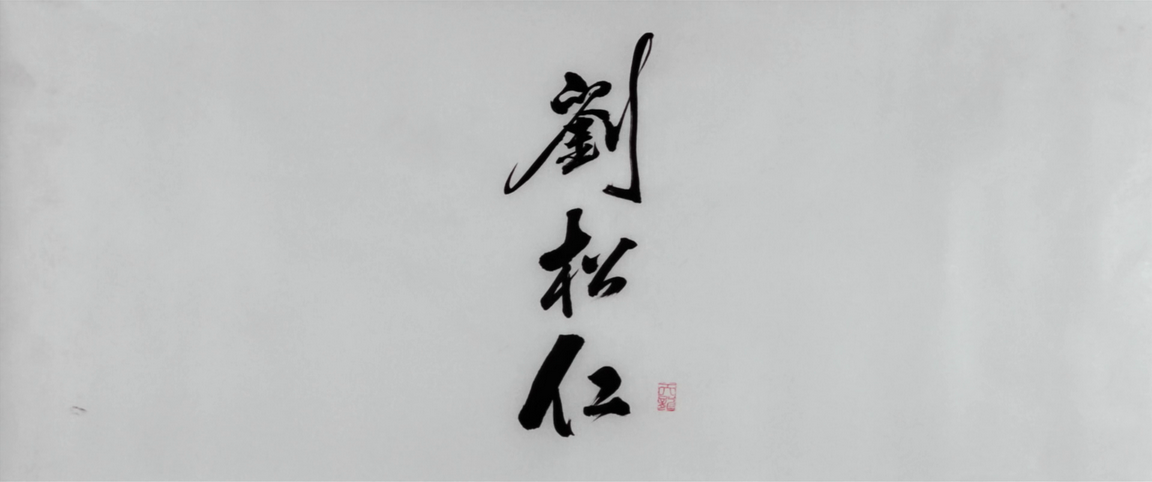 劉松仁